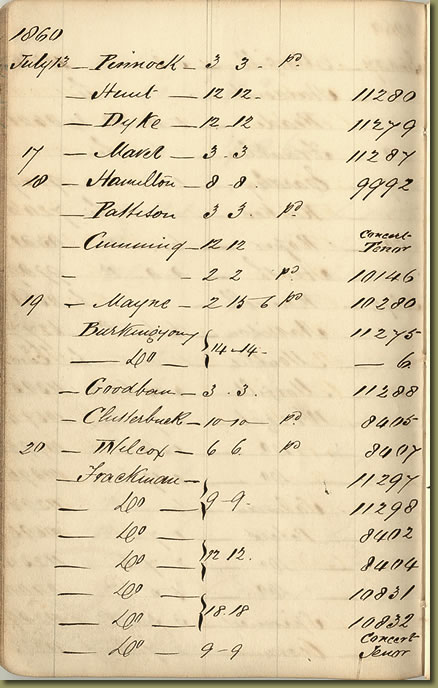 1860
July 13 — Pinnock — 3 3 - pd
— Hunt — 12 12 - 11280
— Dyke — 12 - 12 11279
17 — Mavel — 3 - 3 11287
18 — Hamilton — 8 - 8 . 9992
— Patteson 3 3 . pd
— Cumming — 12 12 Concert Tenor
— 2 2 pd 10146
19 — Mayne — 2 15 - 6 pd 10280
Burkingyoung 11275
— Do — } 14 - 14 - — 6
— Goodban — 3 . 3 . 11288
— Clutterbuck — 10 - 10 — pd 8405
20 — Wilcox — 6 6 . pd 8407
— Frackman — 11297
— Do — } 9 - 9 - 11298
— Do — 8402
— Do — } 12 12 . 8404
— Do — 10831
— Do — } 18 - 18 10832
— Do — 9 - 9 Concert Tenor